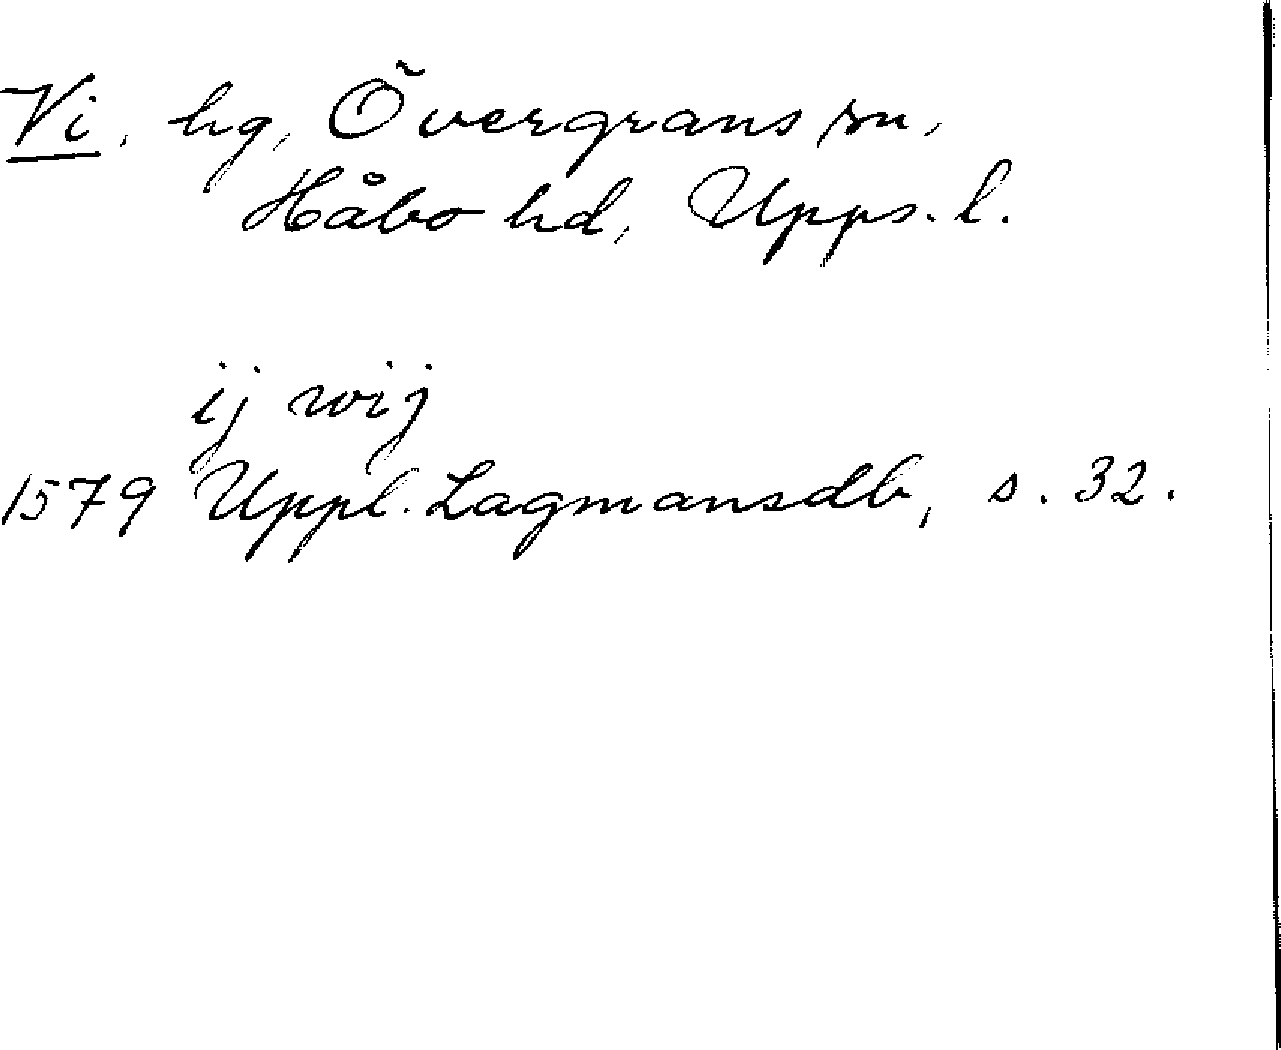 Vi, hg, Övergrans sn,
Håbo hd, Upps. l.
ij wij
1579 Uppl. Lagmansdb, s. 32.